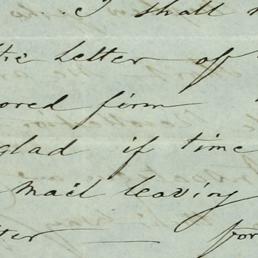 . I shall
the letter of
ored firm
glad if time
mail leaving
ter — for